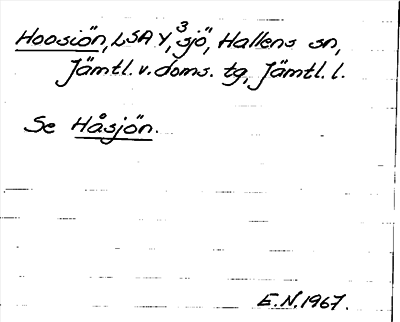 Hoosiön, LSA Y, ³sjö, Hallens sn,
Jämtl. v. doms. tg, Jämtl. l.
Se Håsjön.
E.N. 1967.